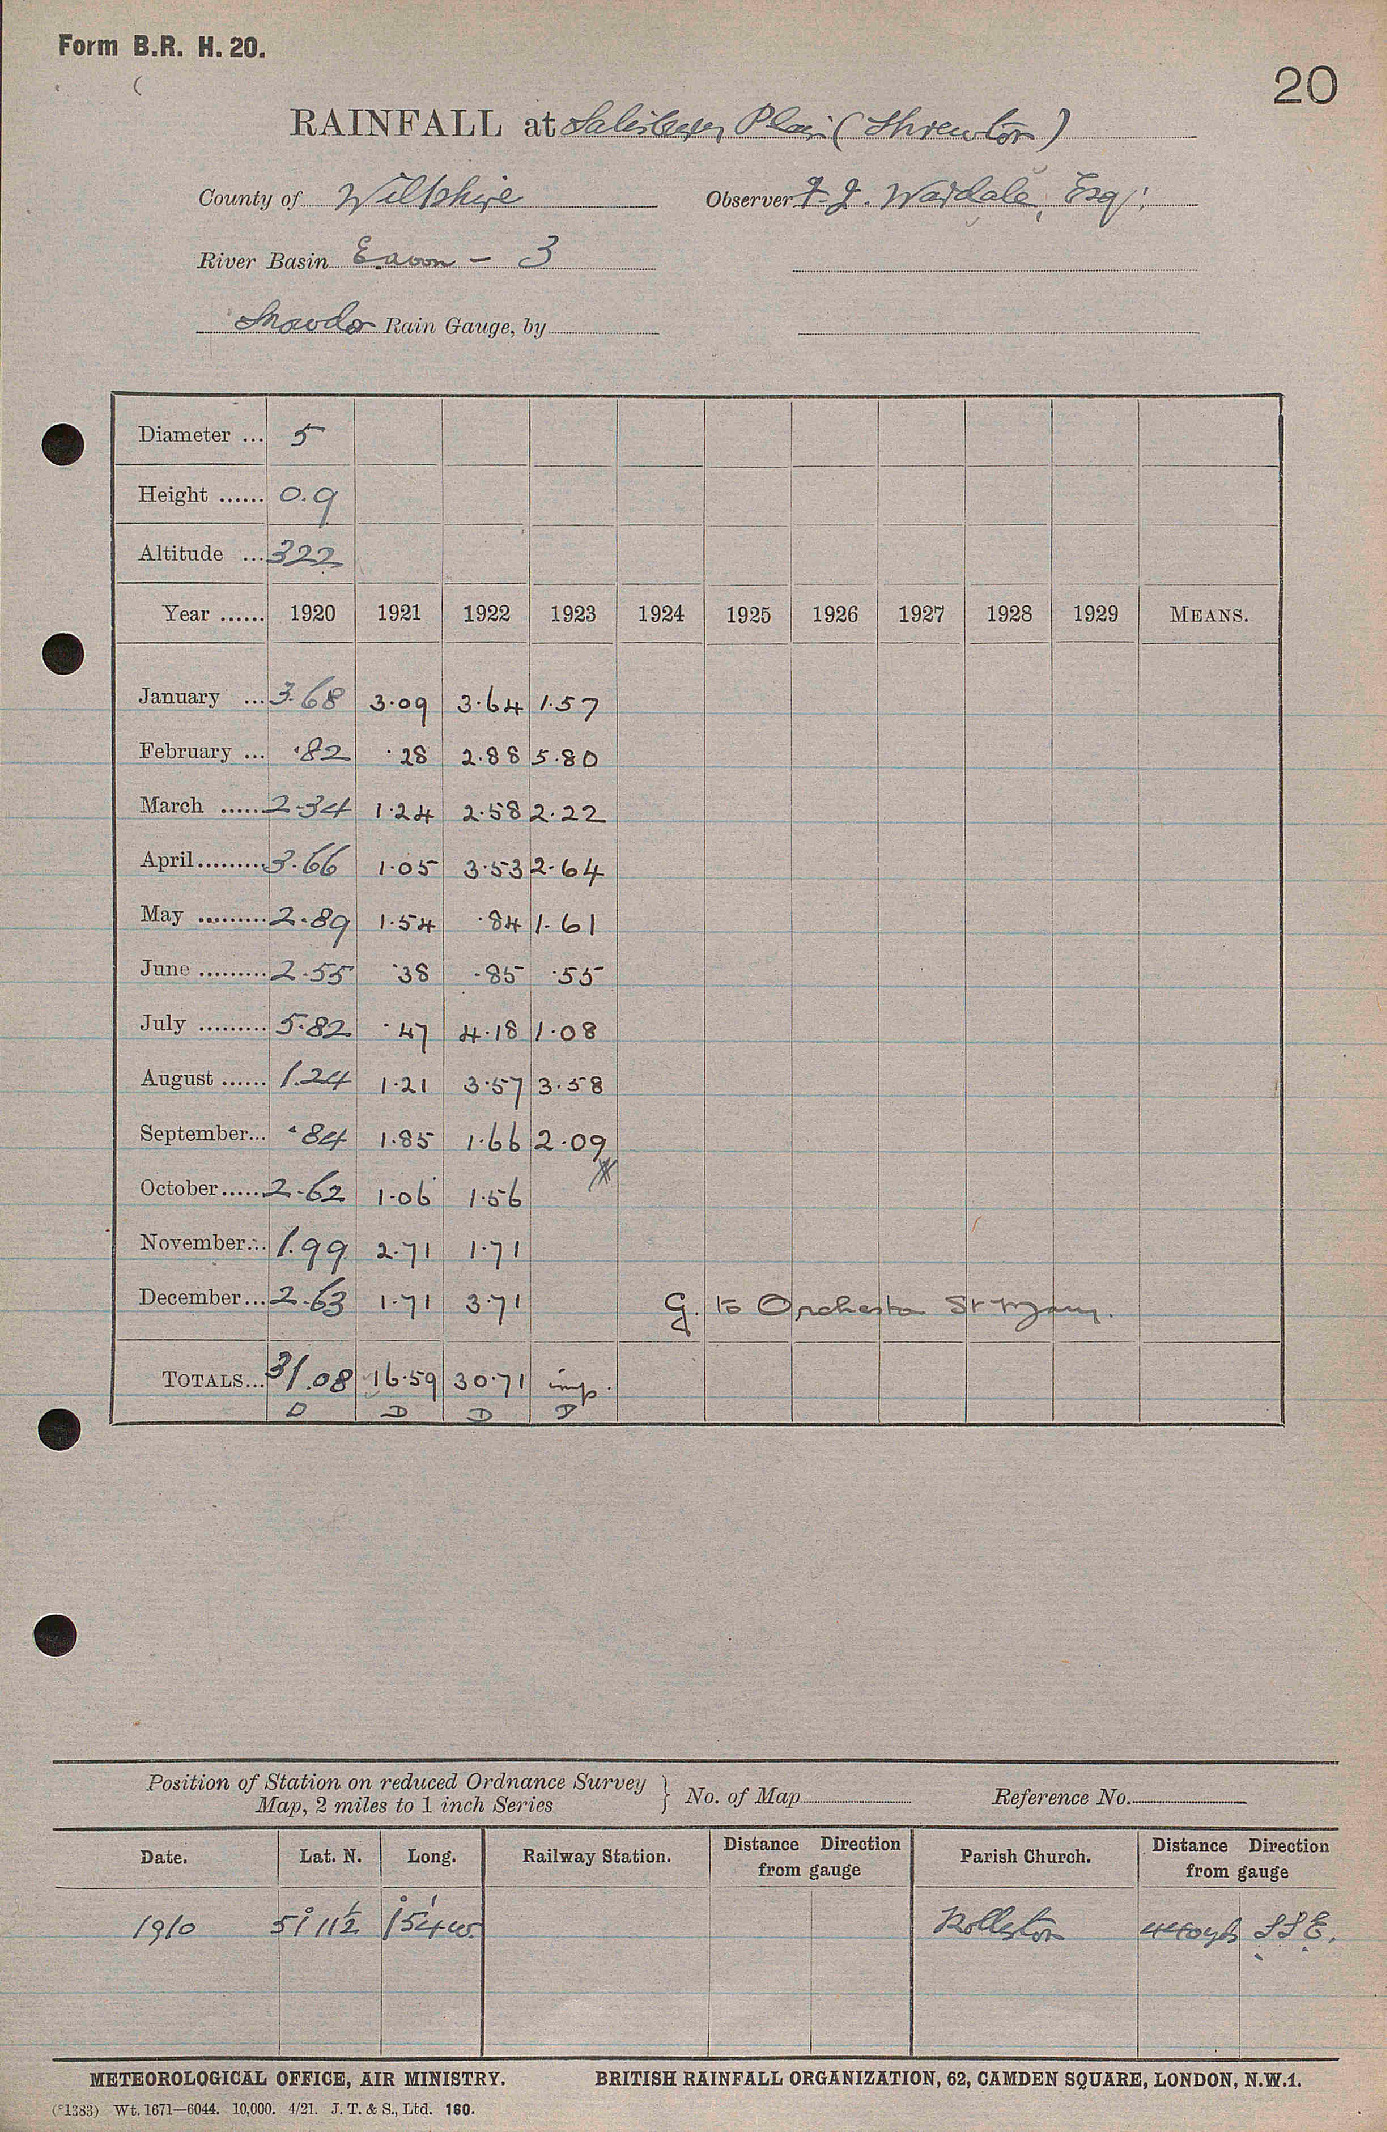 Form B.R. H. 20.
20
RAINFALL at Salisbury Plain (Shrewton)
County of Wiltshire Observer F. J. Wardale, Esq:
River Basin Eavon - 3
Snowdon Rain Gauge, by
Diameter ... 5
Height ...... 0.9
Altitude ... 322
Year ...... 1920 1921 1922 1923 1924 1925 1926 1927 1928 1929 MEANS.
January ... 3.68 3.09 3.64 1.57
February ... .82 .28 2.88 5.80
March ...... 2.34 1.24 2.58 2.22
April ......... 3.66 1.05 3.53 2.64
May ......... 2.89 1.54 .84 1.61
June ......... 2.55 .38 .85 .55
July ......... 5.82 .47 4.18 1.08
August ...... 1.24 1.21 3.57 3.58
September... .84 1.85 1.66 2.09
October...... 2.62 1.06 1.56
November... 1.99 2.71 1.71
December... 2.63 1.71 3.71 G. to Orcheston St Mary.
TOTALS... 31.08 16.59 30.71 imp.
D D D D
Position of Station on reduced Ordnance Survey
Map, 2 miles to 1 inch Series } No. of Map Reference No.
Date. Lat. N. Long. Railway Station. Distance Direction from gauge Parish Church. Distance Direction from gauge
1910 51° 11½ 1° 54' W. Rolleston 440 yds SSE.
METEOROLOGICAL OFFICE, AIR MINISTRY. BRITISH RAINFALL ORGANIZATION, 62, CAMDEN SQUARE, LONDON, N.W.1.
(*1383) Wt. 1671—6044. 10,000. 4/21. J. T. & S., Ltd. 160.